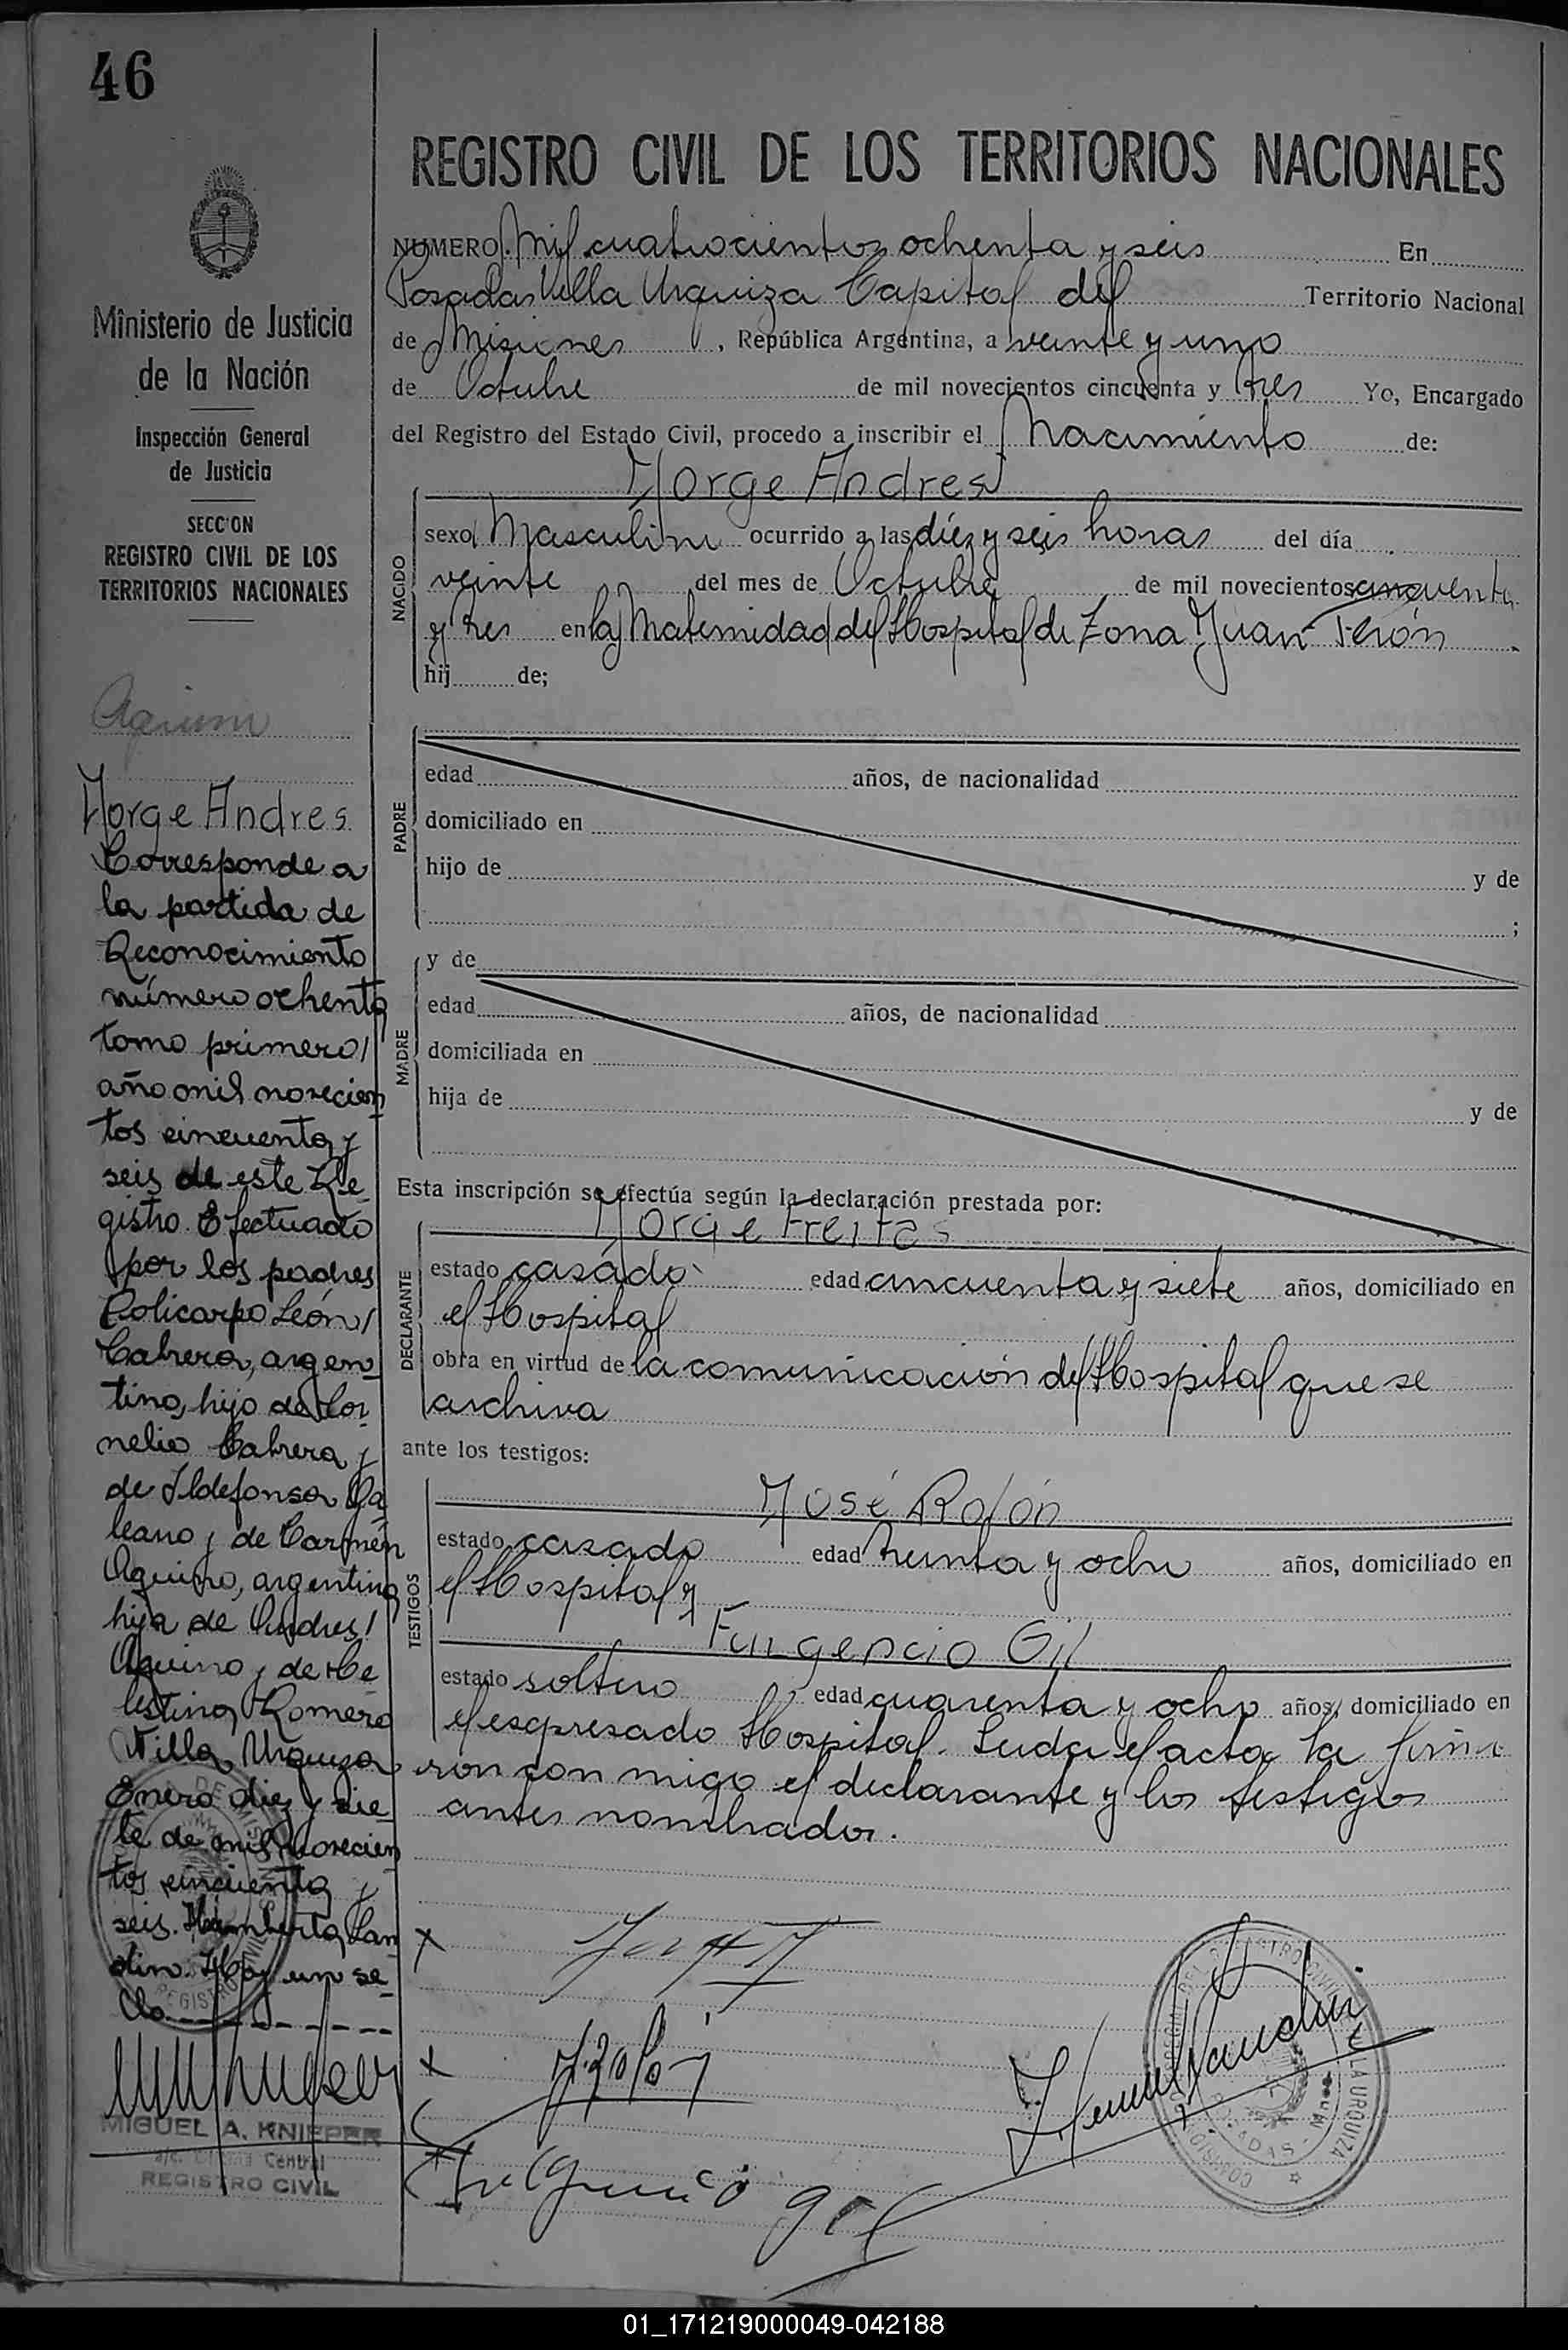 46
REGISTRO CIVIL DE LOS TERRITORIOS NACIONALES
Ministerio de Justicia
de la Nación
Inspección General
de Justicia
SECC'ON
REGISTRO CIVIL DE LOS
TERRITORIOS NACIONALES
Jorge Andres
Corresponde a
la partida de
Reconocimiento
número ochenta
tomo primero/
año mil novecien
tos cincuenta y
seis de este Re
gistro. Efectuado
por los padres
Policarpo León/
Cabrera, argen
tino, hijo de Cor
nelio Cabrera y
de Ildefonsa Ga
leano y de Carmen
Aquino, argentina
hija de Andres/
Aquino y de Ce
lestina Romero
Villa Urquiza
Enero diez y sie
te de mil novecien
tos cincuenta y
seis. Humberto Lan
din. Hay un se
llo
MIGUEL A. KNIEPER
a/c. Oficina Central
REGISTRO CIVIL
NUMERO Mil cuatrocientos ochenta y seis En
Posadas Villa Urquiza Capital del Territorio Nacional
de Misiones, República Argentina, a veinte y uno
de Octubre de mil novecientos cincuenta y tres Yo, Encargado
del Registro del Estado Civil, procedo a inscribir el Nacimiento de:
Jorge Andres
NACIDO
sexo Masculino ocurrido a las diez y seis horas del día
veinte del mes de Octubre de mil novecientos cincuenta
y tres en la Maternidad del Hospital de Zona Juan Perón
hij de;
PADRE
edad años, de nacionalidad
domiciliado en
hijo de y de
;
MADRE
y de
edad años, de nacionalidad
domiciliada en
hija de y de
Esta inscripción se efectúa según la declaración prestada por:
Jorge Freitas
DECLARANTE
estado casado edad cincuenta y siete años, domiciliado en
el Hospital
obra en virtud de la comunicación del Hospital que se
archiva
ante los testigos:
TESTIGOS
José Rolón
estado casado edad treinta y ocho años, domiciliado en
el Hospital y
Fulgencio Gil
estado soltero edad cuarenta y ocho años, domiciliado en
el expresado Hospital. Leida el acta la firma
ron con migo el declarante y los testigos
antes nombrados.
Fulgencio Gil
VILLA URQUIZA
POSADAS
01_171219000049-042188